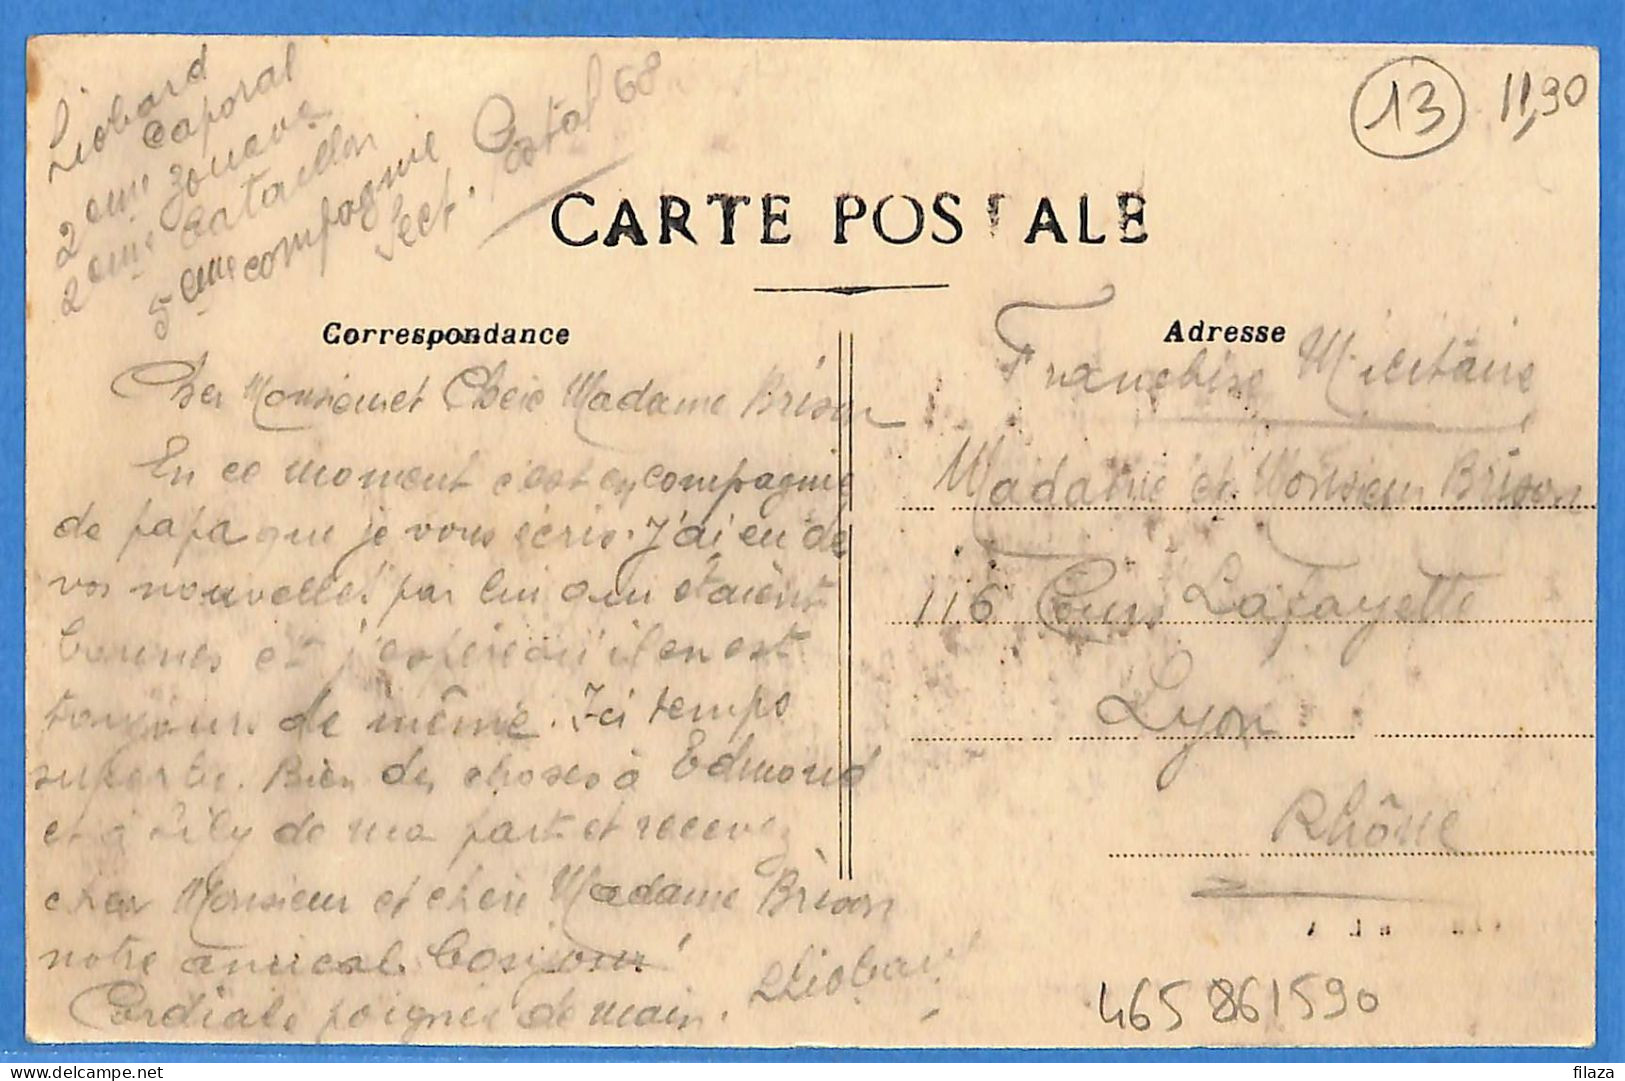 Liobard
Caporal
2eme zouave
2eme bataillon
5eme compagnie
Sect. Postal 68
13
11,90
CARTE POSTALE
Correspondance
Cher Monsieur et Chere Madame Brison
En ce moment c'est en compagnie
de papa que je vous écris. J'ai eu de
vos nouvelles par lui qui étaient
bonnes et j'espère qu'il en est
toujours de même. Ici temps
superbe. Bien des choses à Edmond
et à Lily de ma part et recevez
cher Monsieur et chère Madame Brison
notre amical bonjour
Cordiale poignée de main.
Liobard
Adresse
Franchise Militaire
Madame et Monsieur Brison
116 Cours Lafayette
Lyon
Rhône
465 861590
delcampe.net
filaza